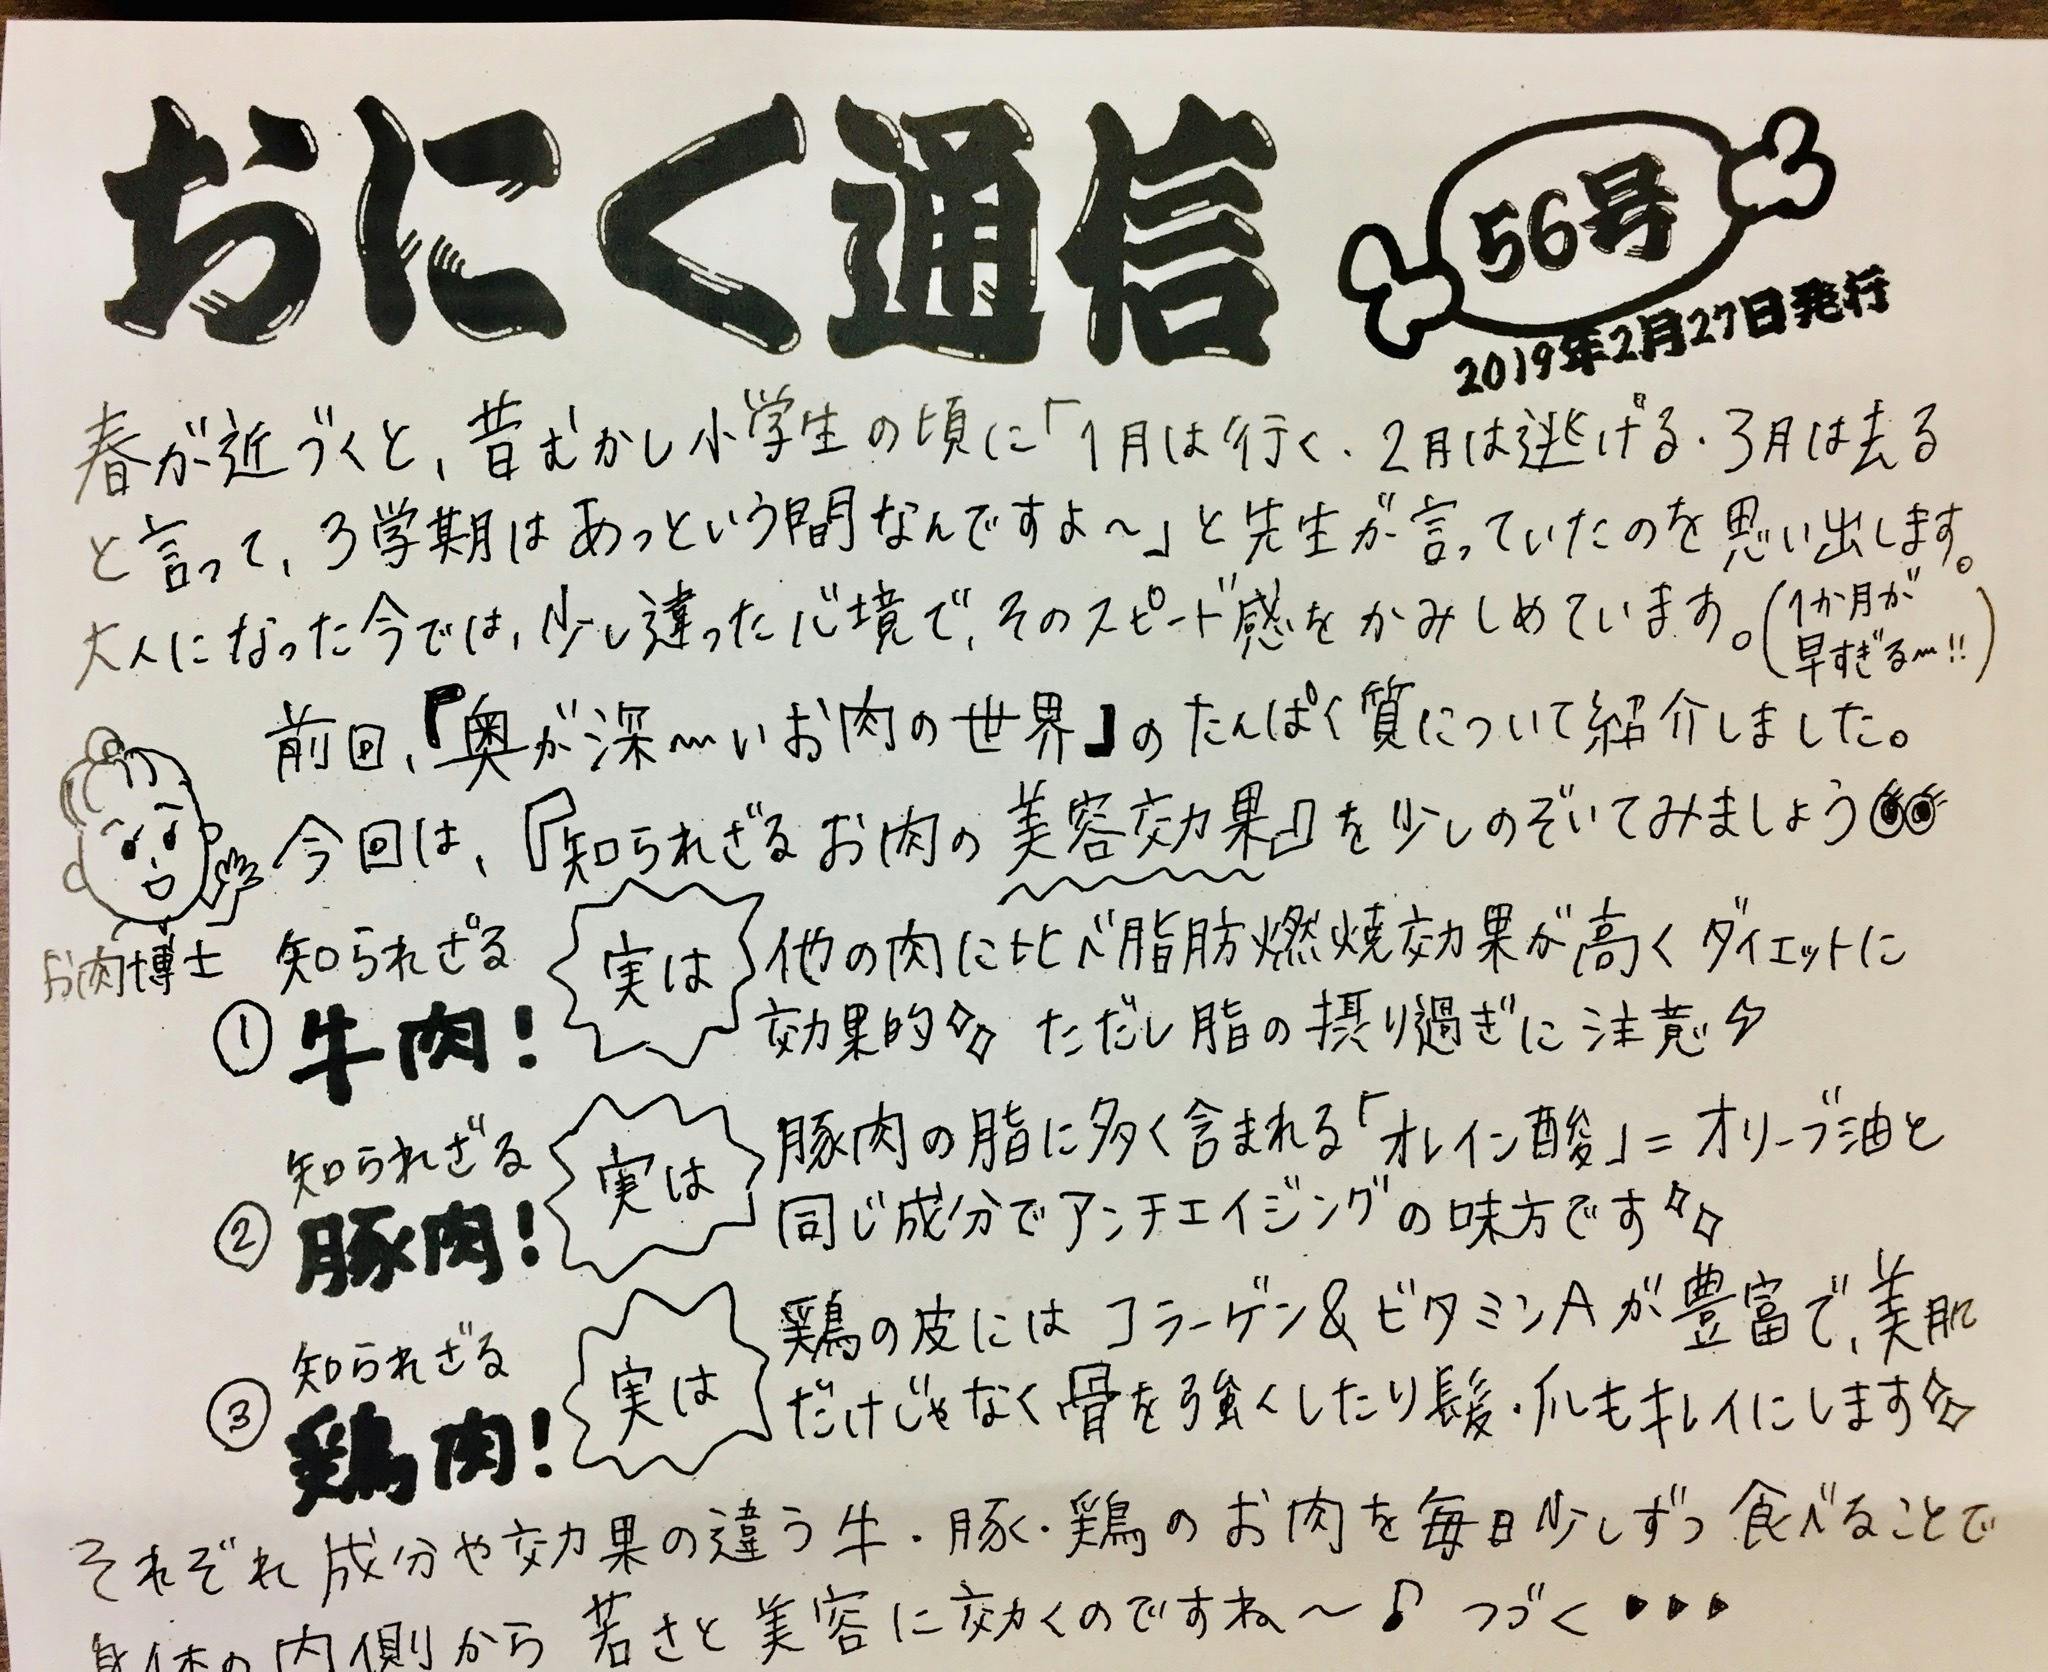 おにく通信
56号
2019年2月27日発行
春が近づくと、昔むかし小学生の頃に「1月は行く・2月は逃げる・3月は去る
と言って、3学期はあっという間なんですよ〜」と先生が言っていたのを思い出します。
大人になった今では、少し違った心境で、そのスピード感をかみしめています。(1か月が
早すぎる〜!!)
前回、『奥が深〜いお肉の世界』のたんぱく質について紹介しました。
今回は、『知られざるお肉の美容効果』を少しのぞいてみましょう
お肉博士
知られざる
①牛肉!
実は
他の肉に比べ脂肪燃焼効果が高くダイエットに
効果的 ただし脂の摂り過ぎに注意
知られざる
②豚肉!
実は
豚肉の脂に多く含まれる「オレイン酸」=オリーブ油と
同じ成分でアンチエイジングの味方です
知られざる
③鶏肉!
実は
鶏の皮にはコラーゲン&ビタミンAが豊富で、美肌
だけじゃなく骨を強くしたり髪・爪もキレイにします
それぞれ成分や効果の違う牛・豚・鶏のお肉を毎日少しずつ食べることで
身体の内側から若さと美容に効くのですね〜♪ つづく・・・